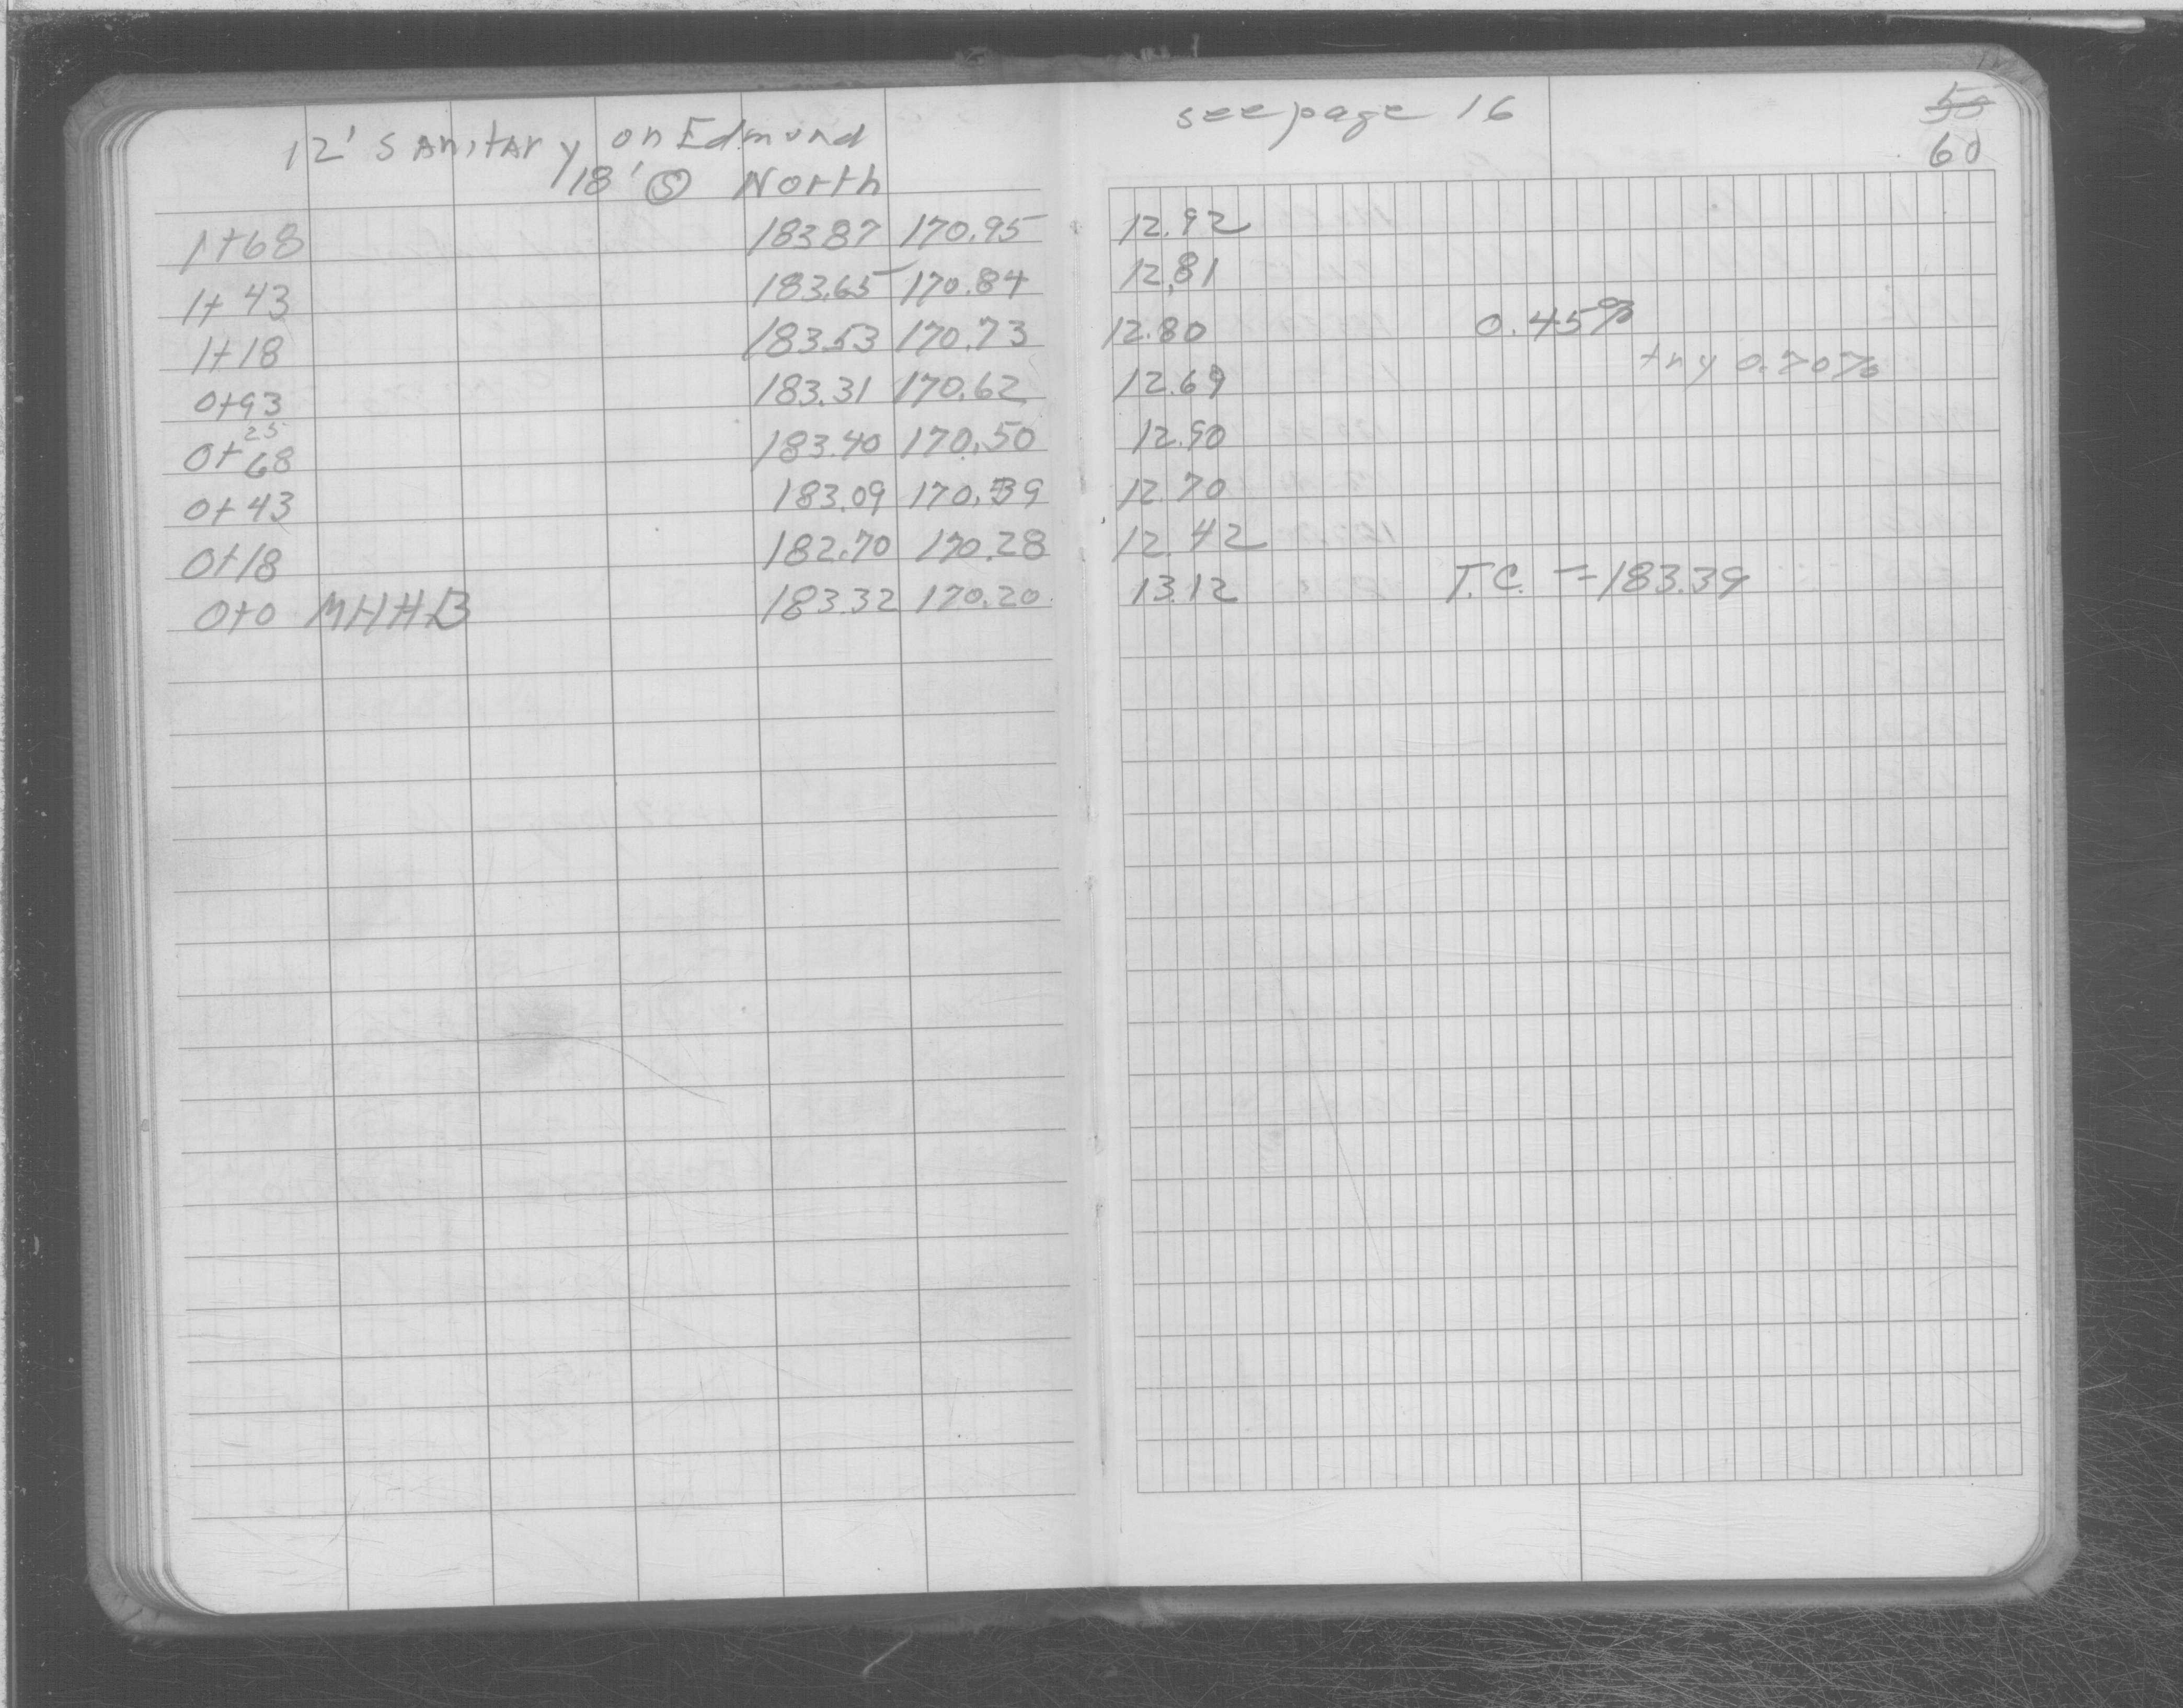 12' Sanitary on Edmund
18' Ⓢ North
1+68 183.87 170.95
1+43 183.65 170.84
1+18 183.53 170.73
0+93 183.31 170.62
25
0+68 183.40 170.50
0+43 183.09 170.39
0+18 182.70 170.28
0+0 MHHB 183.32 170.20
see page 16
60
12.92
12.81
12.80 0.45%
try 0.70%
12.69
12.90
12.70
12.42
13.12 T.C. = 183.39